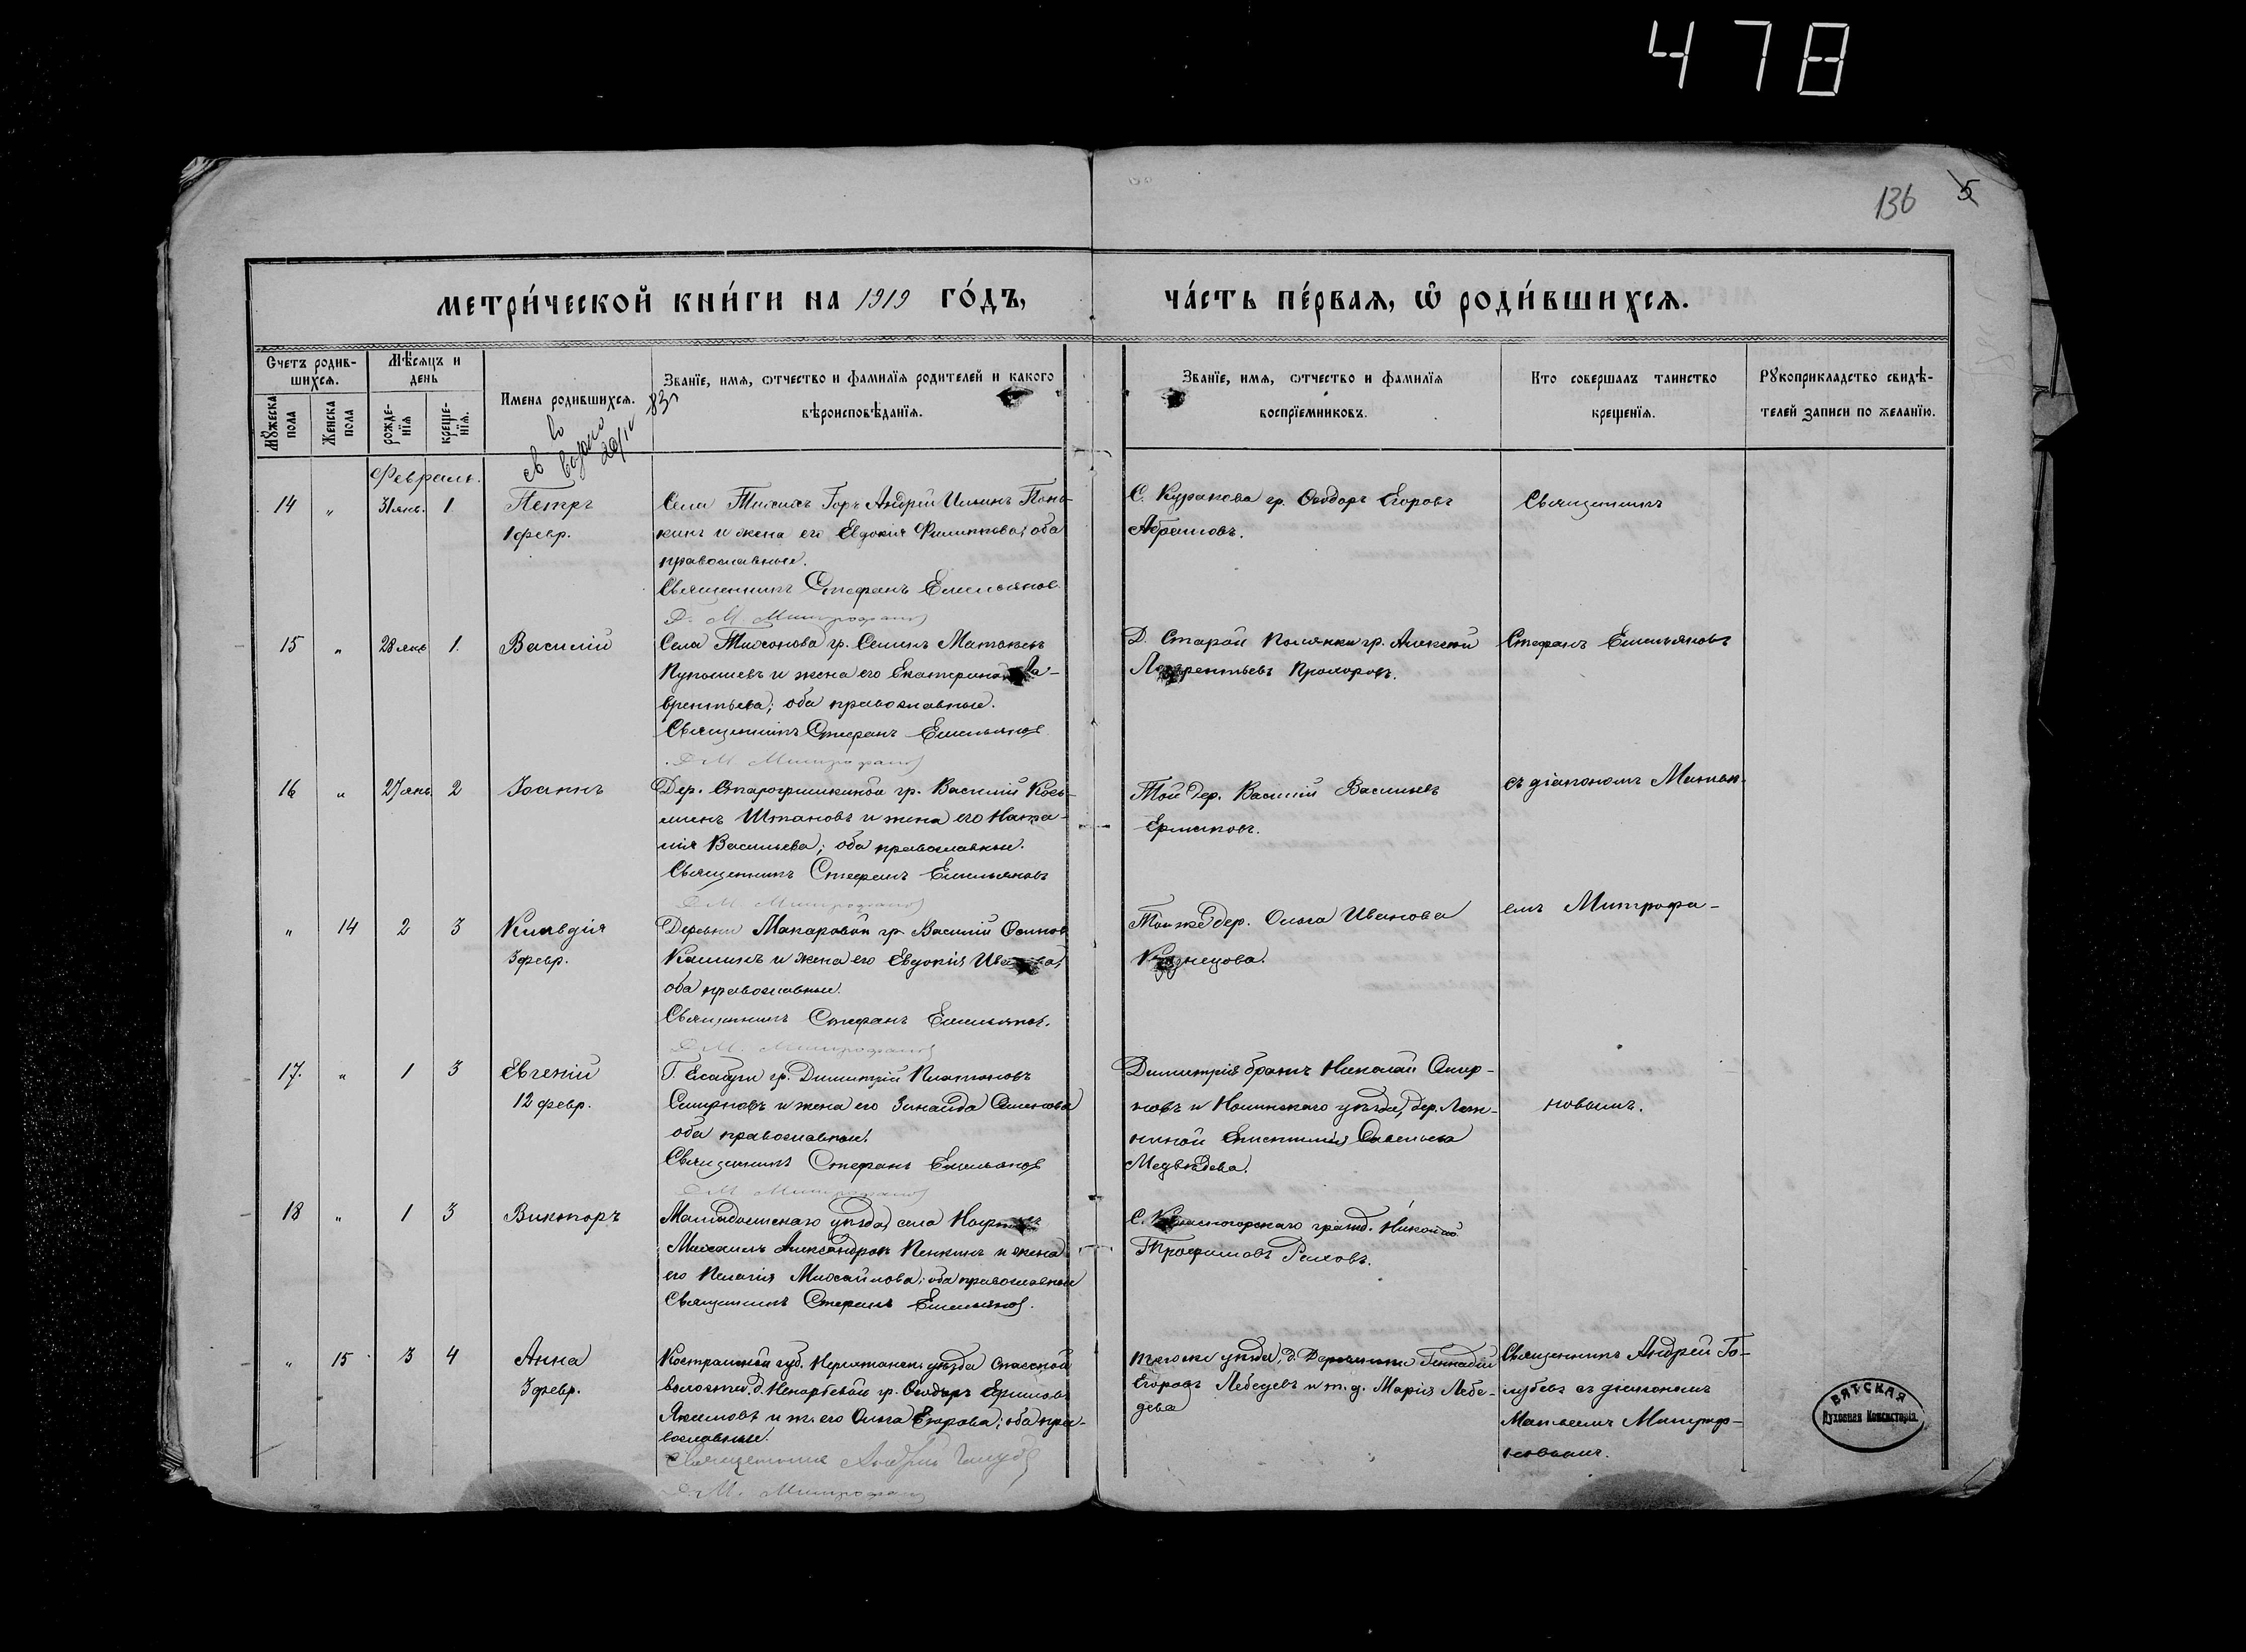 478
136 5
МЕТРИ́ЧЕСКОЙ КНИ́ГИ НА 1919 ГО́ДЪ,
ЧА́СТЬ ПЕ́РВАЯ, Ѡ РОДИ́ВШИХСЯ.
Счетъ родив-
шихся.
Мѣсяцъ и
день
Мужеска
пола
Женска
пола
рожде-
нїя
креще-
нїя.
Имена родившихся.
Званїе, имя, ѡтчество и фамилїя родителей и какого
вѣроисповѣданїя.
Званїе, имя, ѡтчество и фамилїя
воспрїемниковъ.
Кто совершалъ таинство
крещенїя.
Рукоприкладство свидѣ-
телей записи по желанїю.
Февраль.
14 " 31 янв. 1 Петръ
1 февр.
Села Тихихъ Горъ Андрей Ильинъ
и жена его Евдокія Филиппова; оба
православные.
Священникъ Стефанъ Емельянов
Д. М. Митрофанов
С. Куракова гр. Ѳеодоръ Егоровъ
Абрамовъ.
Священникъ
15 " 28 янв 1. Василій
Села Тихонова гр. Семенъ
и жена его Екатерина Ла-
врентьева; оба православные.
Священникъ Стефанъ Емельянов
Д М Митрофанов
Д. Старой Полянки гр. Алексей
Лаврентьевъ Прохоровъ.
Стефанъ Емельяновъ
16 " 27 янв 2 Іоаннъ
Дер. Старогришкиной гр. Василій Козь-
минъ Штановъ и жена его Ната-
лія Васильева; оба православные.
Священникъ Стефанъ Емельяновъ
Д М Митрофанов
Той дер. Василій Васильевъ
Ермаковъ.
съ діакономъ Матѳе-
" 14 2 3 Клавдія
3 февр.
Деревни Макаровой гр. Василій Осипов
Калининъ и жена его Евдокія Иванова;
оба православные.
Священникъ Стефанъ Емельянов.
Д М. Митрофанов
Той же дер. Ольга Иванова
Кузнецова.
емъ Митрофа-
17. " 1 3 Евгеній
12 февр.
Г. Елабуги гр. Димитрій Платоновъ
Смирновъ и жена его Зинаида Семенова
оба православные.
Священникъ Стефанъ Емельянов
Д М Митрофанов
Димитрія братъ Николай Смир-
новъ и Нолинскаго уѣзда, дер.
Савельева
Медвѣдева.
новымъ.
18 " 1 3 Викторъ
Малмыжскаго уѣзда, села
Михаилъ Александровъ Пенкинъ и жена
его Пелагія Михайлова; оба православные
Священникъ Стефанъ Емельянов.
С. Красногорскаго гражд. Николай
Трофимовъ
" 15 3 4 Анна
3 февр.
Костромской губ. уѣзда Спасской
волости, д. гр. Ѳеодоръ Ефимовъ
Якимовъ и ж. его Ольга Егорова; оба пра-
вославные.
Священникъ Андрей Голубев
Д. М. Митрофанов
уѣзда, д. Геннадій
Егоровъ Лебедевъ и т. д. Марія Лебе-
дева
Священникъ Андрей Го-
лубевъ съ діакономъ
Матѳеемъ Митрофа-
новымъ.
ВЯТСКАЯ
Духовная Консисторія